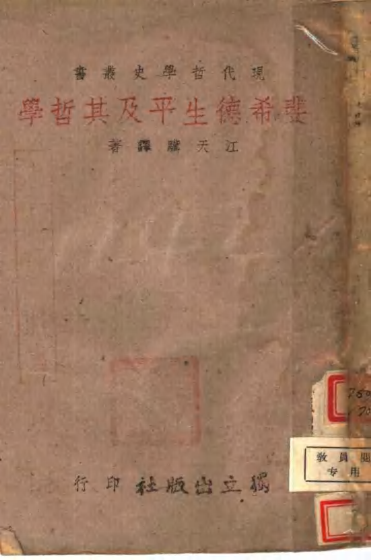 現代哲學史叢書
斐希德生平及其哲學
江天驥譯著
獨立出版社印行
教員閱
专用